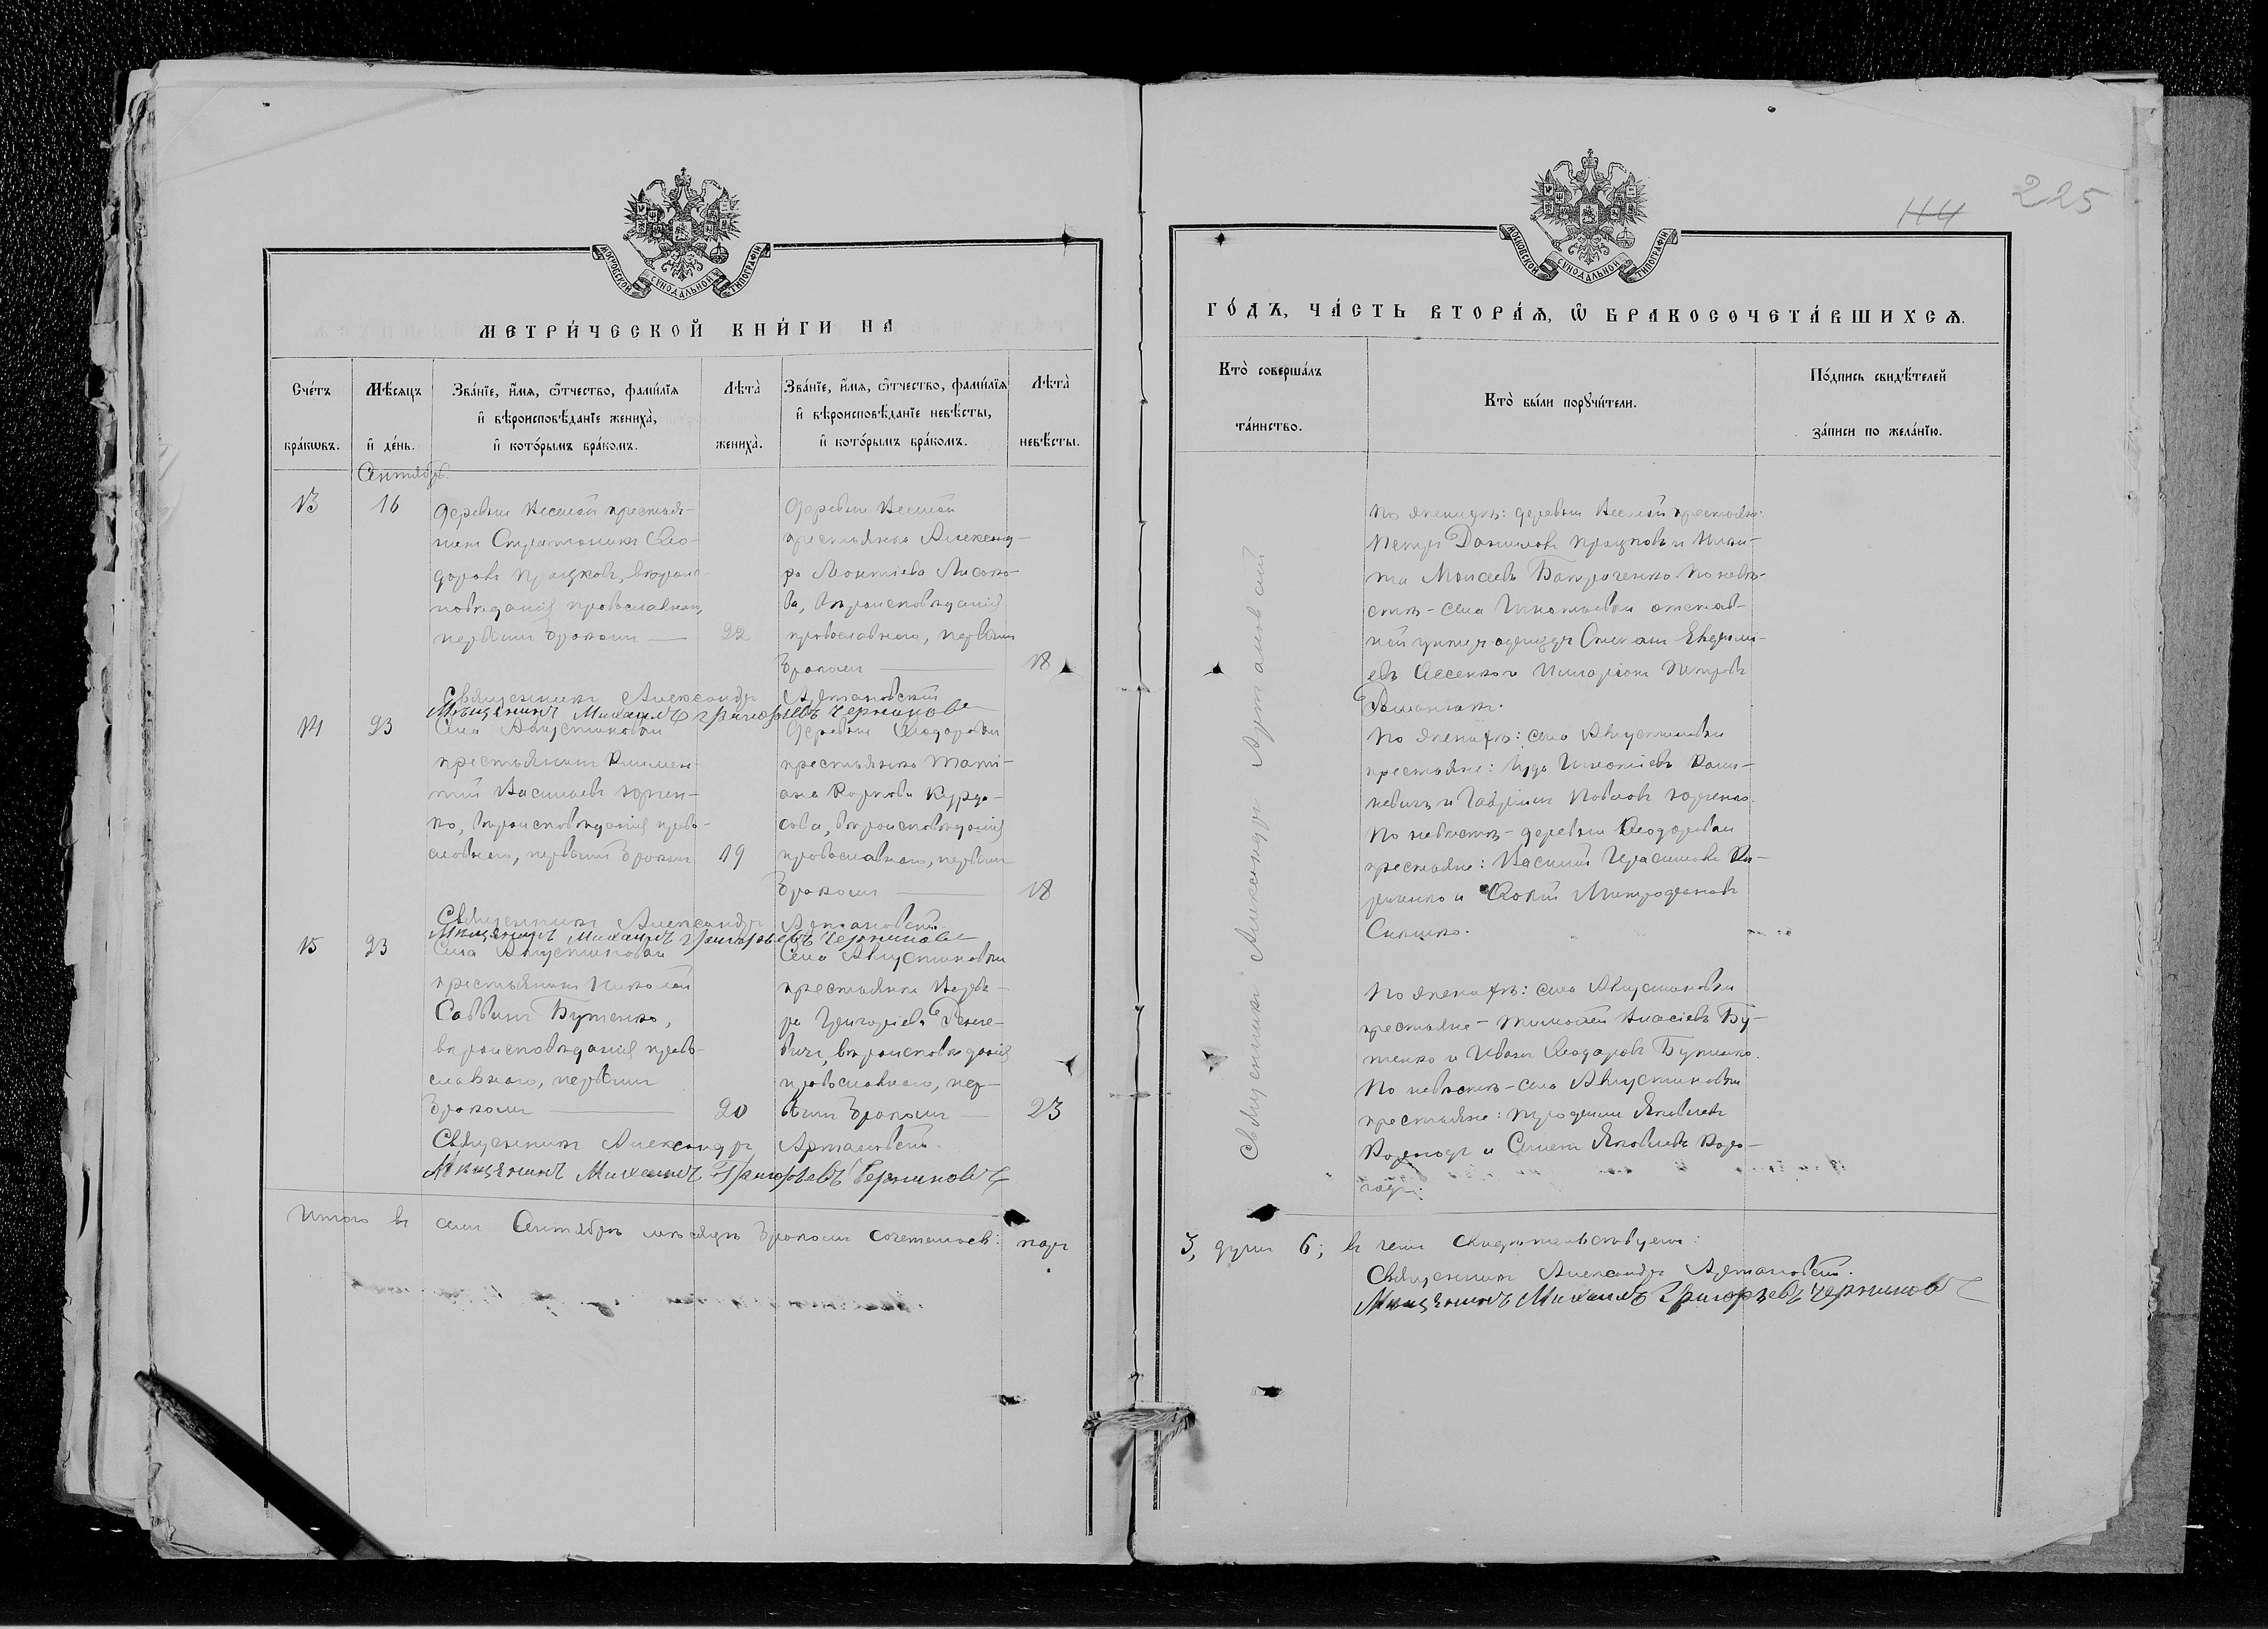 МОСКОВСКОЙ СѴНОДАЛЬНОЙ ТИПОГРАФІИ
МЕТРИ́ЧЕСКОЙ КНИ́ГИ НА
Сче́тъ бра́кѡвъ.
Мѣ́сяцъ и҆ де́нь.
Зва́нїе, и҆́мѧ, ѻ҆́тчество, фами́лїѧ
и҆ вѣроисповѣ́данїе жениха̀,
и҆ кото́рымъ бра́комъ.
Лѣта̀ жениха̀.
Зва́нїе, и҆́мѧ, ѻ҆́тчество, фами́лїѧ
и҆ вѣроисповѣ́данїе невѣ́сты,
и҆ кото́рымъ бра́комъ.
Лѣта̀ невѣ́сты.
Сентябрь
13
16
деревни крестья-
нин Стратоник Ѳео-
доров Процков, вѣроис-
повѣданія православнаго,
первым браком
22
деревни
крестьянка Александ-
ра Леонтіева Лисако-
ва, вѣроисповѣданія
православнаго, первым
браком
18
Священник Александр Артановскій
Мѣщанинъ Михаилъ Григорьевъ Черниковъ
14
23
Села Августиновки
крестьянин Климен-
тій Васильев Юрчен-
ко, вѣроисповѣданія право-
славнаго, первым браком
19
деревни Ѳеодоровки
крестьянка Тати-
ана Карпова Курда-
сова, вѣроисповѣданія
православнаго, первым
браком
18
Священник Александр Артановскій.
Мѣщанинъ Михаилъ Григорьевъ Черниковъ
15
23
Села Августиновки
крестьянин Николай
Саввин Бутенко,
вѣроисповѣданія право-
славнаго, первым
браком
20
Села Августиновки
крестьянка Варва-
ра Григоріева
вѣроисповѣданія
православнаго, пер-
вым браком
23
Священник Александр Артановскій.
Мѣщанинъ Михаилъ Григорьевъ Черниковъ
Итого в сем Сентябрѣ мѣсяцѣ браком сочеталось: пар
225
114
МОСКОВСКОЙ СѴНОДАЛЬНОЙ ТИПОГРАФІИ
ГО́ДЪ, ЧА́СТЬ ВТОРА́Ѧ, Ѡ҆ БРАКОСОЧЕТА́ВШИХСѦ.
Кто̀ соверша́лъ та́инство.
Кто̀ бы́ли порꙋчи́тели.
По́дпись свидѣ́телей за́писи по жела́нїю.
Священник Александр Артановскій
По женихѣ: деревни крестьяне:
Петр Данилов Процков и Ники-
та Моисеев Батраченко По невѣ-
стѣ - села Игнатьевки отстав-
ной унтер офицер Стефан
ев и Иларіон Петров
По женихѣ: села Августиновки
крестьяне: Іуда Игнатіев
и Гавріил Павлов Юрченко.
По невѣстѣ - деревни Ѳеодоровки
крестьяне: Василій Герасимов
и Митрофанов
По женихѣ: села Августиновки
крестьяне - Тимоѳей Власіев Бу-
тенко и Иван Ѳеодоров Бутенко.
По невѣстѣ - села Августиновки
крестьяне: Трофим Яковлев
и Яковлев
3, душ 6; в чем свидѣтельствуем:
Священник Александр Артановскій.
Мѣщанинъ Михаилъ Григорьевъ Черниковъ